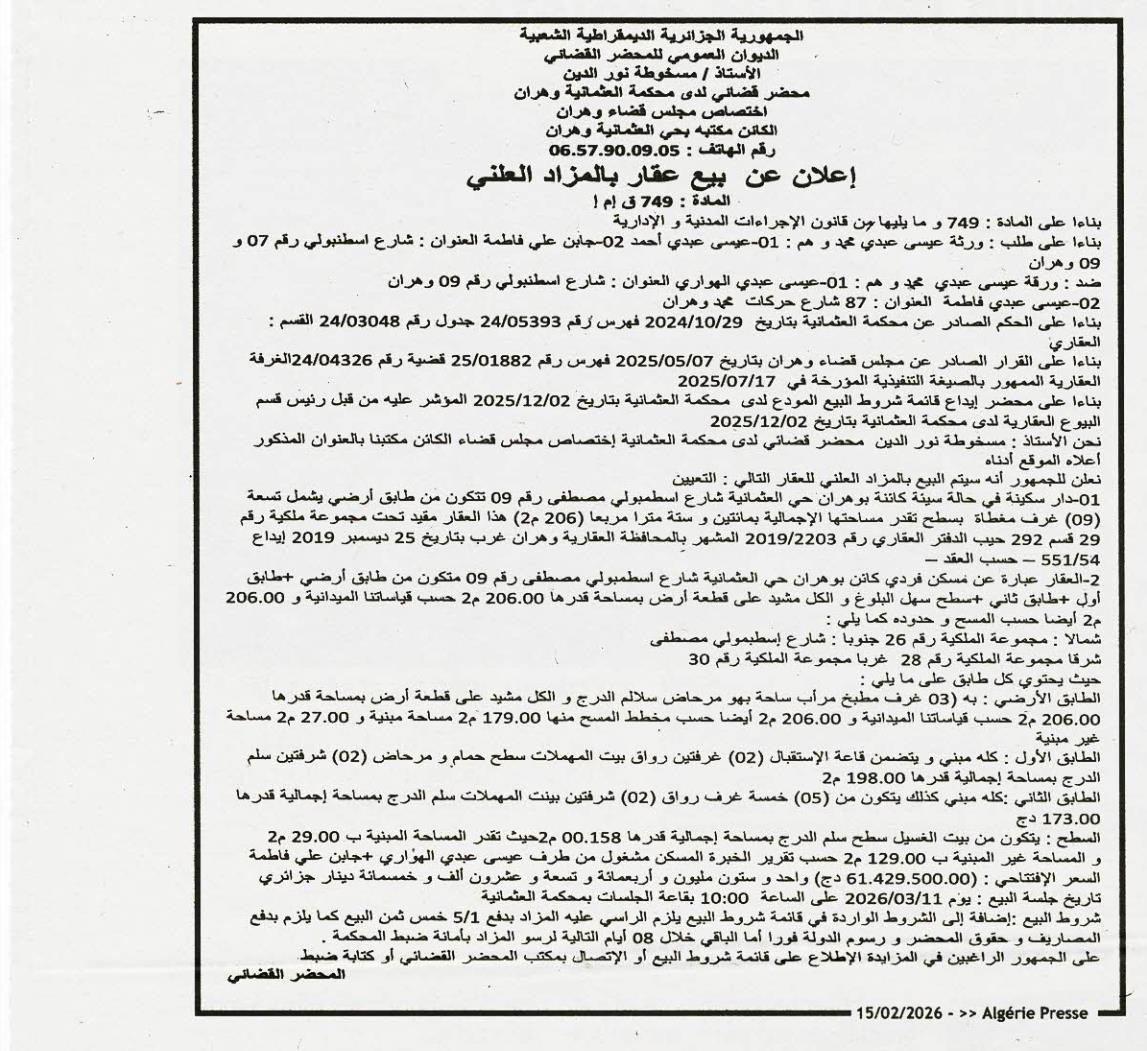 الجمهورية الجزائرية الديمقراطية الشعبية
الديوان العمومي للمحضر القضائي
الأستاذ / مسخوطة نور الدين
محضر قضائي لدى محكمة العثمانية وهران
اختصاص مجلس قضاء وهران
الكائن مكتبه بحي العثمانية وهران
رقم الهاتف : 06.57.90.09.05
إعلان عن بيع عقار بالمزاد العلني
المادة : 749 ق إم إ
بناءا على المادة : 749 و ما يليها من قانون الإجراءات المدنية و الإدارية
بناءا على طلب : ورثة عيسى عبدي محمد و هم : 01-عيسى عبدي أحمد 02-جابن علي فاطمة العنوان : شارع اسطنبولي رقم 07 و
09 وهران
ضد : ورقة عيسى عبدي محمد و هم : 01-عيسى عبدي الهواري العنوان : شارع اسطنبولي رقم 09 وهران
02-عيسى عبدي فاطمة العنوان : 87 شارع حركات محمد وهران
بناءا على الحكم الصادر عن محكمة العثمانية بتاريخ 2024/10/29 فهرس رقم 24/05393 جدول رقم 24/03048 القسم :
العقاري
بناءا على القرار الصادر عن مجلس قضاء وهران بتاريخ 2025/05/07 فهرس رقم 25/01882 قضية رقم 24/04326الغرفة
العقارية الممهور بالصيغة التنفيذية المؤرخة في 2025/07/17
بناءا على محضر إيداع قائمة شروط البيع المودع لدى محكمة العثمانية بتاريخ 2025/12/02 المؤشر عليه من قبل رئيس قسم
البيوع العقارية لدى محكمة العثمانية بتاريخ 2025/12/02
نحن الأستاذ : مسخوطة نور الدين محضر قضائي لدى محكمة العثمانية إختصاص مجلس قضاء الكائن مكتبنا بالعنوان المذكور
أعلاه الموقع أدناه
نعلن للجمهور أنه سيتم البيع بالمزاد العلني للعقار التالي : التعيين
01-دار سكينة في حالة سيئة كائنة بوهران حي العثمانية شارع اسطمبولي مصطفى رقم 09 تتكون من طابق أرضي يشمل تسعة
(09) غرف مغطاة بسطح تقدر مساحتها الإجمالية بمائتين و ستة مترا مربعا (206 م2) هذا العقار مقيد تحت مجموعة ملكية رقم
29 قسم 292 حيب الدفتر العقاري رقم 2019/2203 المشهر بالمحافظة العقارية وهران غرب بتاريخ 25 ديسمبر 2019 إيداع
551/54 – حسب العقد –
2-العقار عبارة عن مسكن فردي كائن بوهران حي العثمانية شارع اسطمبولي مصطفى رقم 09 متكون من طابق أرضي +طابق
أول +طابق ثاني +سطح سهل البلوغ و الكل مشيد على قطعة أرض بمساحة قدرها 206.00 م2 حسب قياساتنا الميدانية و 206.00
م2 أيضا حسب المسح و حدوده كما يلي :
شمالا : مجموعة الملكية رقم 26 جنوبا : شارع إسطبمولي مصطفى
شرقا مجموعة الملكية رقم 28 غربا مجموعة الملكية رقم 30
حيث يحتوي كل طابق على ما يلي :
الطابق الأرضي : به (03 غرف مطبخ مرآب ساحة بهو مرحاض سلالم الدرج و الكل مشيد على قطعة أرض بمساحة قدرها
206.00 م2 حسب قياساتنا الميدانية و 206.00 م2 أيضا حسب مخطط المسح منها 179.00 م2 مساحة مبنية و 27.00 م2 مساحة
غير مبنية
الطابق الأول : كله مبني و يتضمن قاعة الإستقبال (02) غرفتين رواق بيت المهملات سطح حمام و مرحاض (02) شرفتين سلم
الدرج بمساحة إجمالية قدرها 198.00 م2
الطابق الثاني :كله مبني كذلك يتكون من (05) خمسة غرف رواق (02) شرفتين بينت المهملات سلم الدرج بمساحة إجمالية قدرها
173.00 دج
السطح : يتكون من بيت الغسيل سطح سلم الدرج بمساحة إجمالية قدرها 00.158 م2حيث تقدر المساحة المبنية ب 29.00 م2
و المساحة غير المبنية ب 129.00 م2 حسب تقرير الخبرة المسكن مشغول من طرف عيسى عبدي الهواري +جابن علي فاطمة
السعر الإفتتاحي : (61.429.500.00 دج) واحد و ستون مليون و أربعمائة و تسعة و عشرون ألف و خمسمائة دينار جزائري
تاريخ جلسة البيع : يوم 2026/03/11 على الساعة 10:00 بقاعة الجلسات بمحكمة العثمانية
شروط البيع :إضافة إلى الشروط الواردة في قائمة شروط البيع يلزم الراسي عليه المزاد بدفع 5/1 خمس ثمن البيع كما يلزم بدفع
المصاريف و حقوق المحضر و رسوم الدولة فورا أما الباقي خلال 08 أيام التالية لرسو المزاد بأمانة ضبط المحكمة .
على الجمهور الراغبين في المزايدة الإطلاع على قائمة شروط البيع أو الإتصال بمكتب المحضر القضائي أو كتابة ضبط
المحضر القضائي
15/02/2026 - >> Algérie Presse